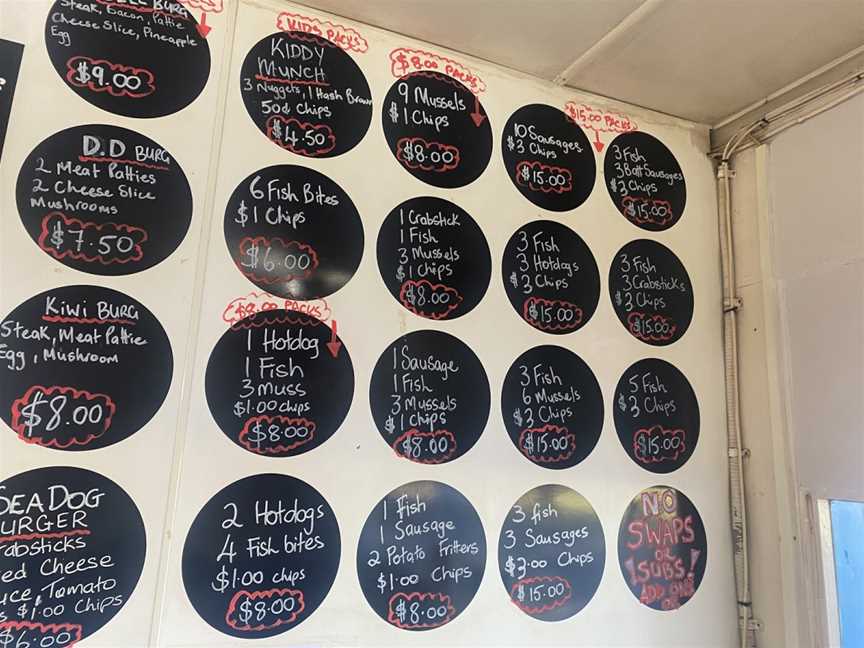 BURG
Steak, Bacon, Pattie
Cheese Slice, Pineapple
Egg
$9.00
D.D BURG
2 Meat Patties
2 Cheese Slice
Mushrooms
$7.50
KIWI BURG
Steak, Meat Pattie
Egg, Mushroom
$8.00
SEADOG
URGER
rabsticks
ed Cheese
uce, Tomato
$1.00 Chips
$6.00
KIDS PACKS
KIDDY
MUNCH
3 Nuggets, 1 Hash Brown
50¢ Chips
$4.50
6 Fish Bites
$1 Chips
$6.00
$8.00 PACKS
1 Hotdog
1 Fish
3 Muss
$1.00 chips
$8.00
2 Hotdogs
4 Fish bites
$1.00 chips
$8.00
$8.00 PACKS
9 Mussels
$1 Chips
$8.00
1 Crabstick
1 Fish
3 Mussels
$1 Chips
$8.00
1 Sausage
1 Fish
3 Mussels
$1 Chips
$8.00
1 Fish
1 Sausage
2 Potato Fritters
$1.00 Chips
$8.00
10 Sausages
$3 Chips
$15.00
3 Fish
3 Hotdogs
$3 Chips
$15.00
3 Fish
6 Mussels
$3 Chips
$15.00
3 fish
3 Sausages
$3.00 Chips
$15.00
$15.00 PACKS
3 Fish
3 Batt Sausages
$3 Chips
$15.00
3 Fish
3 Crabsticks
$3 Chips
$15.00
5 Fish
$3 Chips
$15.00
NO
SWAPS
OR
SUBS!
ADD ONS
OK